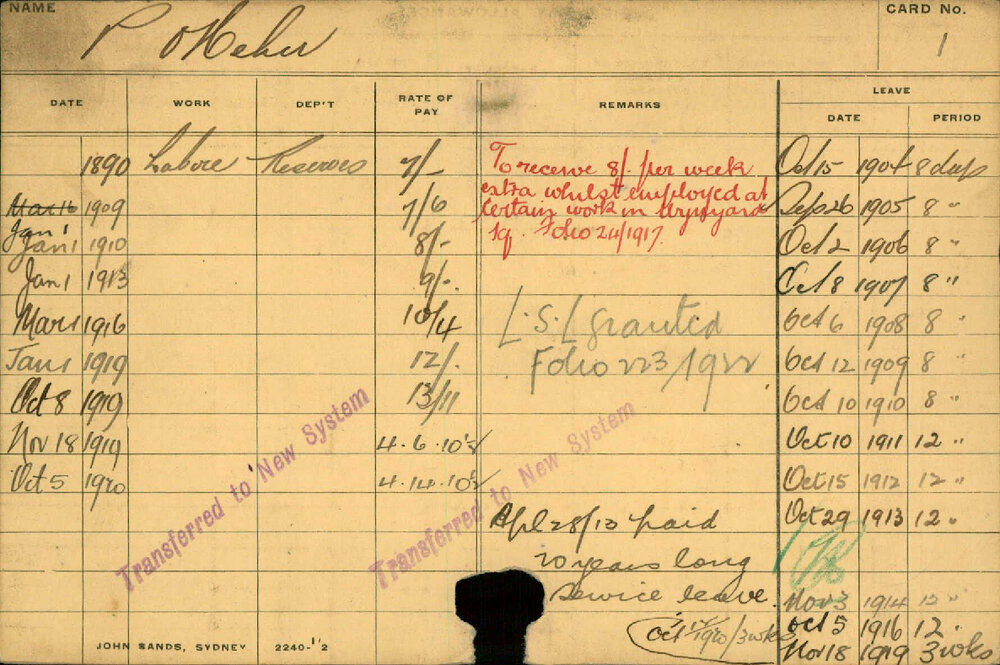 NAME
P O'Meher
CARD No.
1
DATE WORK DEP'T RATE OF PAY REMARKS LEAVE
DATE PERIOD
1890 Labore Reserves 7/-
Mar 16 1909 7/6
Jan 1
Jan 1 1910 8/-
Jan 1 1913 9/-
Mar 1 1916 10/4
Jan 1 1919 12/-
Oct 8 1919 13/11
Nov 18 1919 4.6.10½
Oct 5 1920 4.14.10½
To receive 8/- per week
extra whilst employed at
certain work in Wynyard
Sq. Folio 24/1917
L.S.L granted
Folio 223/1922
Apl 28/13 paid
20 years long
Service leave.
Oct 1920/3wks
Oct 15 1904 8 days
Sep 26 1905 8 "
Oct 2 1906 8 "
Oct 8 1907 8 "
Oct 6 1908 8 "
Oct 12 1909 8 "
Oct 10 1910 8 "
Oct 10 1911 12 "
Oct 15 1912 12 "
Oct 29 1913 12 "
Nov 3 1914 12 "
Oct 5 1916 12 "
Nov 18 1919 3 wks
Transferred to New System
Transferred to New System
JOHN SANDS, SYDNEY 2240-1'2